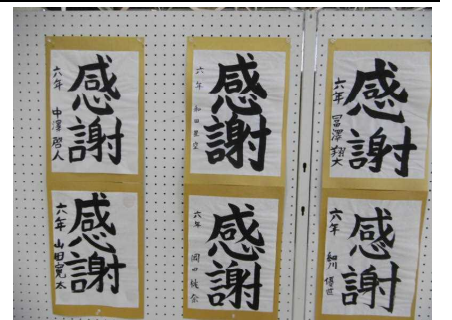 感謝
六年 中澤啓人
感謝
六年 和田
感謝
六年 冨澤翔太
感謝
六年 山田寛太
感謝
六年 岡田
感謝
六年 細川